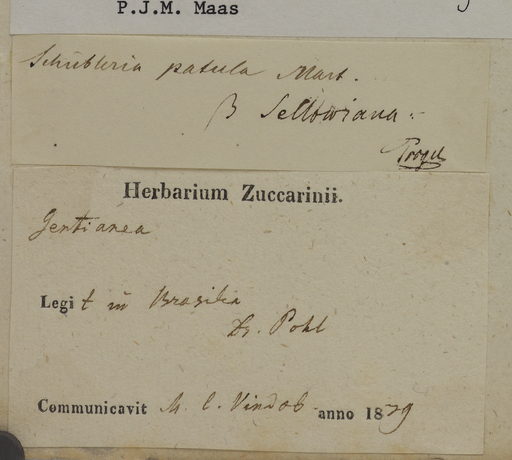 P.J.M. Maas
Schübleria patula Mart.
β Sellowiana.
Progel
Herbarium Zuccarinii.
Gentianea
Legit in Brasilia
Dr. Pohl
Communicavit M. C. Vindob anno 1839